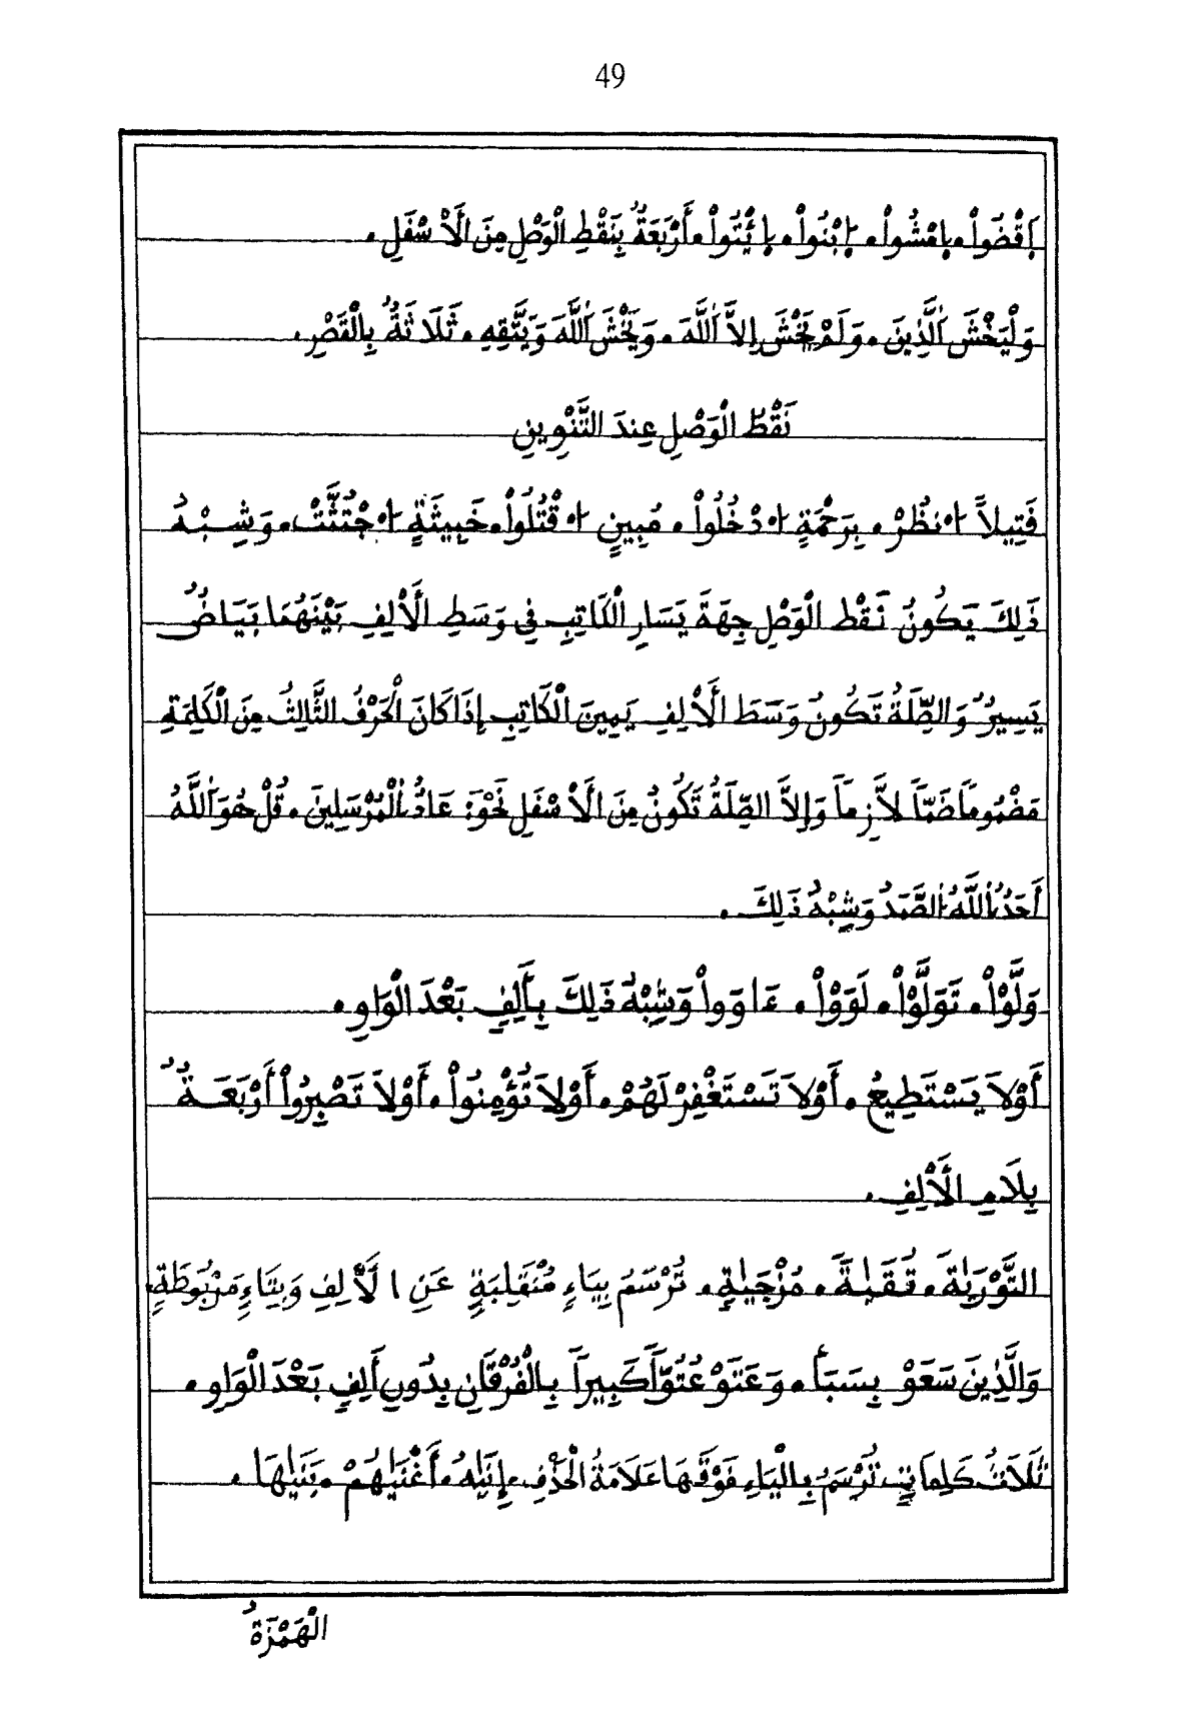 49
اَقْضُواْ. اِمْشُواْ. اِبْنُواْ. اِئْتُواْ. أَرْبَعَةٌ بِنَقْطِ الْوَصْلِ مِنَ الْأَسْفَلِ.
وَلْيَخْشَ اَلَّذِينَ. وَلَمْ يَخْشَ إِلاَّ اَللَّهَ. وَيَخْشَ اَللَّهَ وَيَتَّقِهِ. ثَلَاثَةٌ بِالْقَصْرِ.
نَقْطُ الْوَصْلِ عِندَ التَّنْوِينِ
فَتِيلاً اَنظُرْ. بِرَحْمَةٍ اَدْخُلُواْ. مُبِينٍ اَقْتُلُواْ. خَبِيثَةٍ اَجْتُثَّتْ. وَشِبْهُ
ذَلِكَ يَكُونُ نَقْطُ الْوَصْلِ جِهَةَ يَسَارِ الْكَاتِبِ فِي وَسَطِ الْأَلِفِ بَيْنَهُمَا بَيَاضٌ
يَسِيرٌ وَالصِّلَةُ تَكُونُ وَسَطَ الْأَلِفِ يَمِينَ الْكَاتِبِ إِذَا كَانَ الْحَرْفُ الثَّالِثُ مِنَ الْكَلِمَةِ
مَضْمُومًا ضَمّاً لاَّزِماً وَإِلاَّ الصِّلَةُ تَكُونُ مِنَ الْأَسْفَلِ نَحْوَ: عَادٌ اَلْمُرْسَلِينَ. قُلْ هُوَ اَللَّهُ
أَحَدٌ اَللَّهُ اَلصَّمَدُ وَشِبْهُ ذَلِكَ.
وَلَّوْاْ. تَوَلَّوْاْ. لَوَوْاْ. ءَاوَواْ وَشِبْهُ ذَلِكَ بِأَلِفٍ بَعْدَ الْوَاوِ.
أَوْلاَ يَسْتَطِيعُ. أَوْلاَ تَسْتَغْفِرْ لَهُمْ. أَوْلاَ تُؤْمِنُواْ. أَوْلاَ تَصْبِرُواْ أَرْبَعَةٌ
بِلَامِ الْأَلِفِ.
التَّوْرَيٰةَ. تُقَيٰةً. مُزْجَيٰةٍ. تُرْسَمُ بِيَاءٍ مُنْقَلِبَةٍ عَنِ الْأَلِفِ وَبِتَاءٍ مَرْبُوطَةٍ.
وَالَّذِينَ سَعَوْ بِسَبَأ. وَعَتَوْ عُتُوّاً كَبِيراً بِالْفُرْقَانِ بِدُونِ أَلِفٍ بَعْدَ الْوَاوِ.
ثَلَاثُ كَلِمَاتٍ تُرْسَمُ بِالْيَاءِ فَوْقَهَا عَلَامَةُ الْحَذْفِ. إِنَيٰهُ. أَغْنَيٰهُمْ. بَنَيٰهَا.
الْهَمْزَةُ